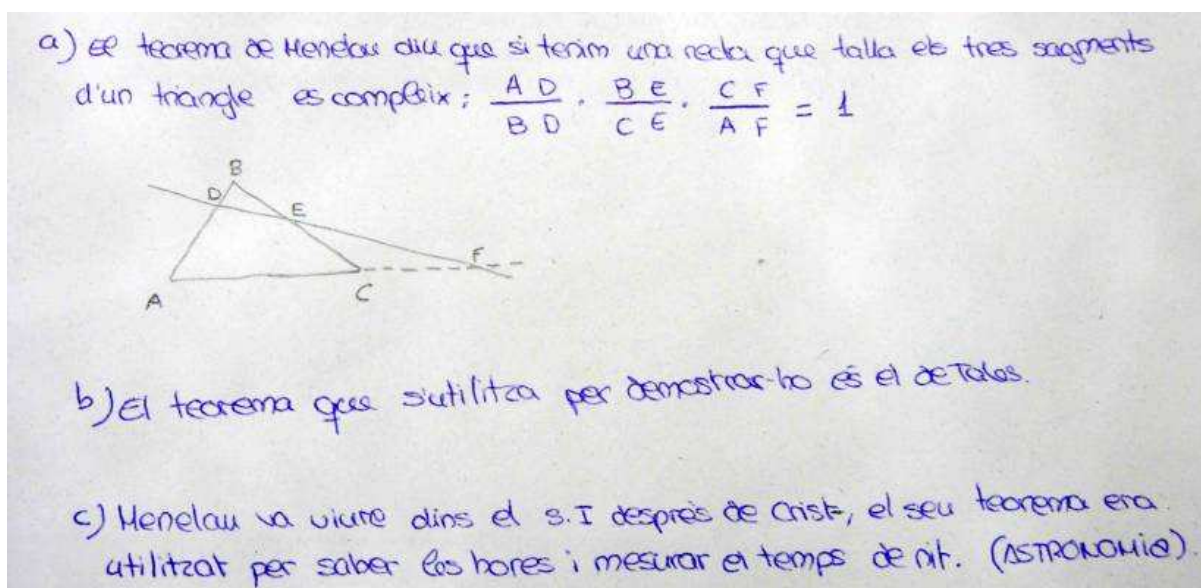 a) El teorema de Menelau diu que si tenim una recta que talla els tres sagments
d'un triangle es compleix: AD/BD · BE/CE · CF/AF = 1
B
D
E
F
A
C
b) El teorema que s'utilitza per demostrar-ho és el de Tales.
c) Menelau va viure dins el s.I després de Crist, el seu teorema era
utilitzat per saber les hores i mesurar el temps de nit. (ASTRONOMIA)